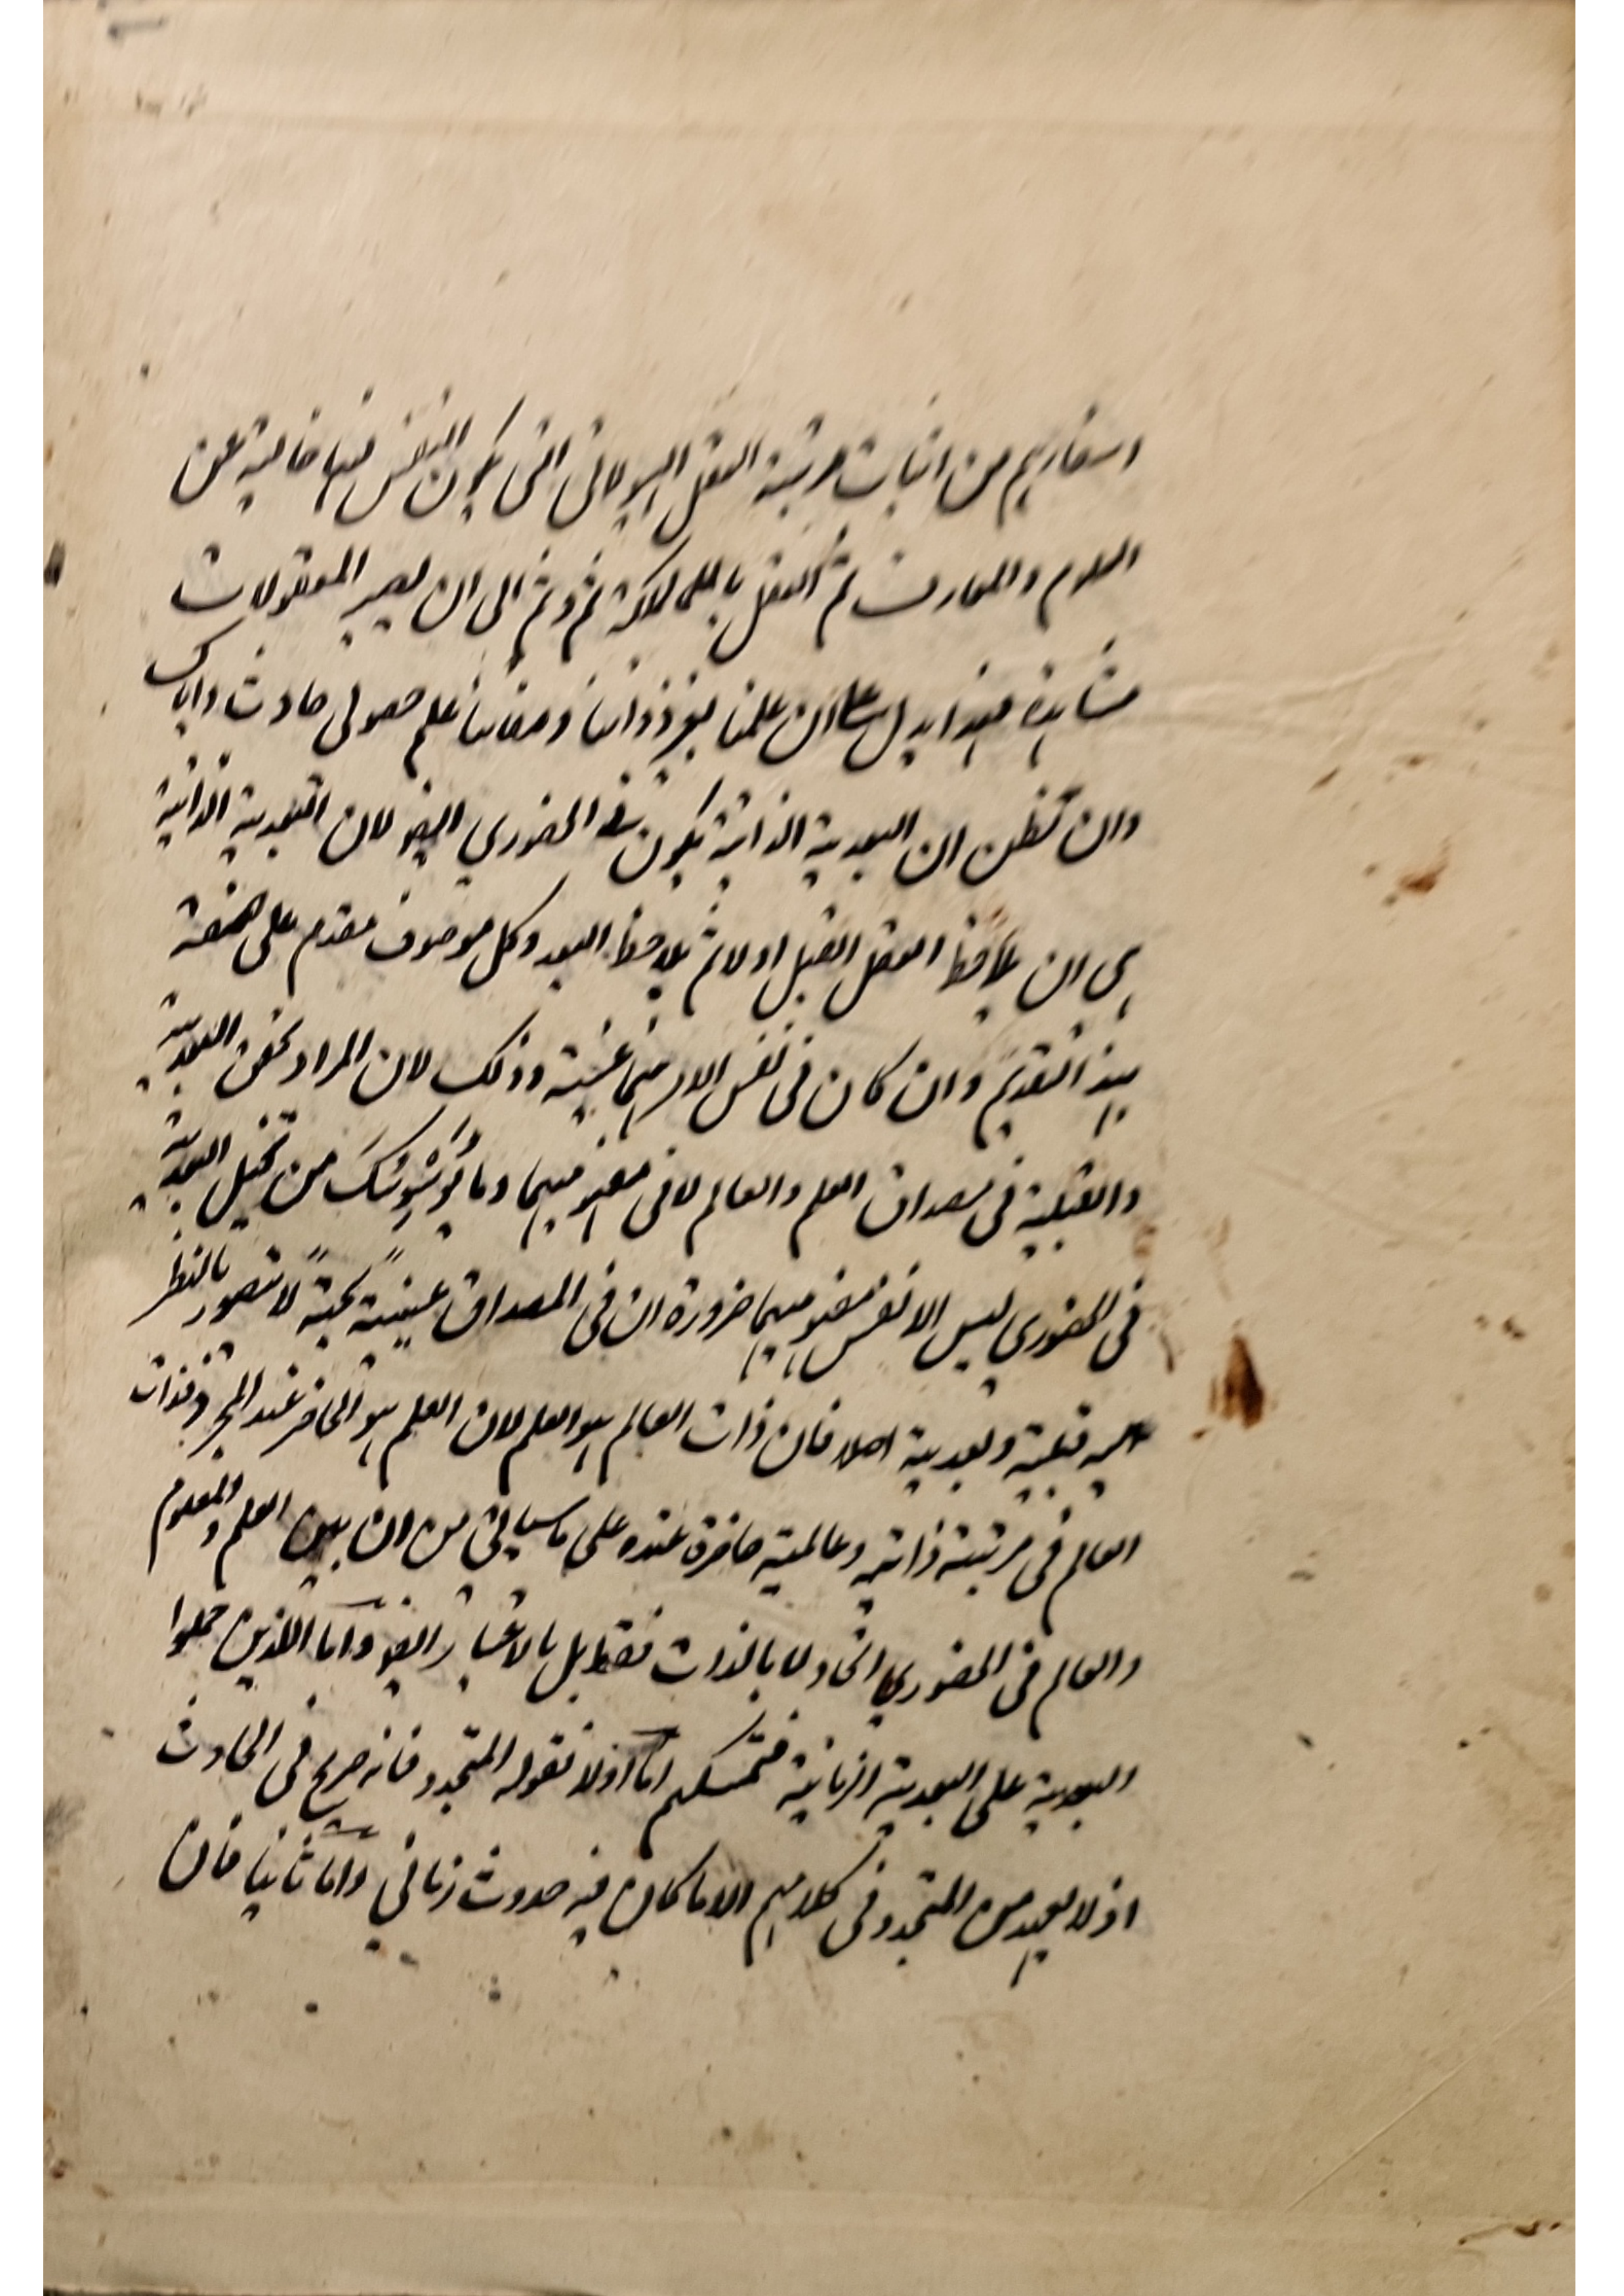 اسفارهم من اثبات مرتبة العقل الهيولانى التى يكون النفس فيها خالية عن
العلوم والمعارف ثم العقل بالملكة ثم وثم الى ان يصير المعقولات
مشاهدة فهذا يدل على ان علمنا بغير ذواتنا وصفاتنا علم حصولى حادث واياك
وان تظن ان البعدية الذاتية يكون فى الحضوري ايضو لان البعدية الذاتية
هى ان يلاحظ العقل القبل اولا ثم يلاحظ البعد وكل موصوف مقدم على صفته
بهذا التقديم وان كان فى نفس الامر بينهما عينية وذلك لان المراد تحقق البعدية
والقبلية فى مصداق العلم والعالم لا فى مفهوميهما وما يوشوشك من تخيل البعدية
فى الحضوري ليس الا نفس مفهوميهما ضرورة ان فى المصداق عينيةً بحتةً لا يتصور بالنظر
اليه قبلية وبعدية اصلا فان ذات العالم هو العلم لان العلم هو الحاضر عند المجرد فذات
العالم فى مرتبة ذاته وعالميته حاضرة عنده على ما سياتي من ان بين العلم والمعلوم
والعالم فى الحضوري اتحاد لا بالذات فقط بل بالاعتبار ايضو واما اللذين حملوا
البعدية على البعدية الزمانية فتمسكهم اما اولا فقوله المتجدد فانه صريح فى الحادث
اذ لا يعهد من المتجدد فى كلامهم الا ما كان فيه حدوث زمانى واما ثانيا فان